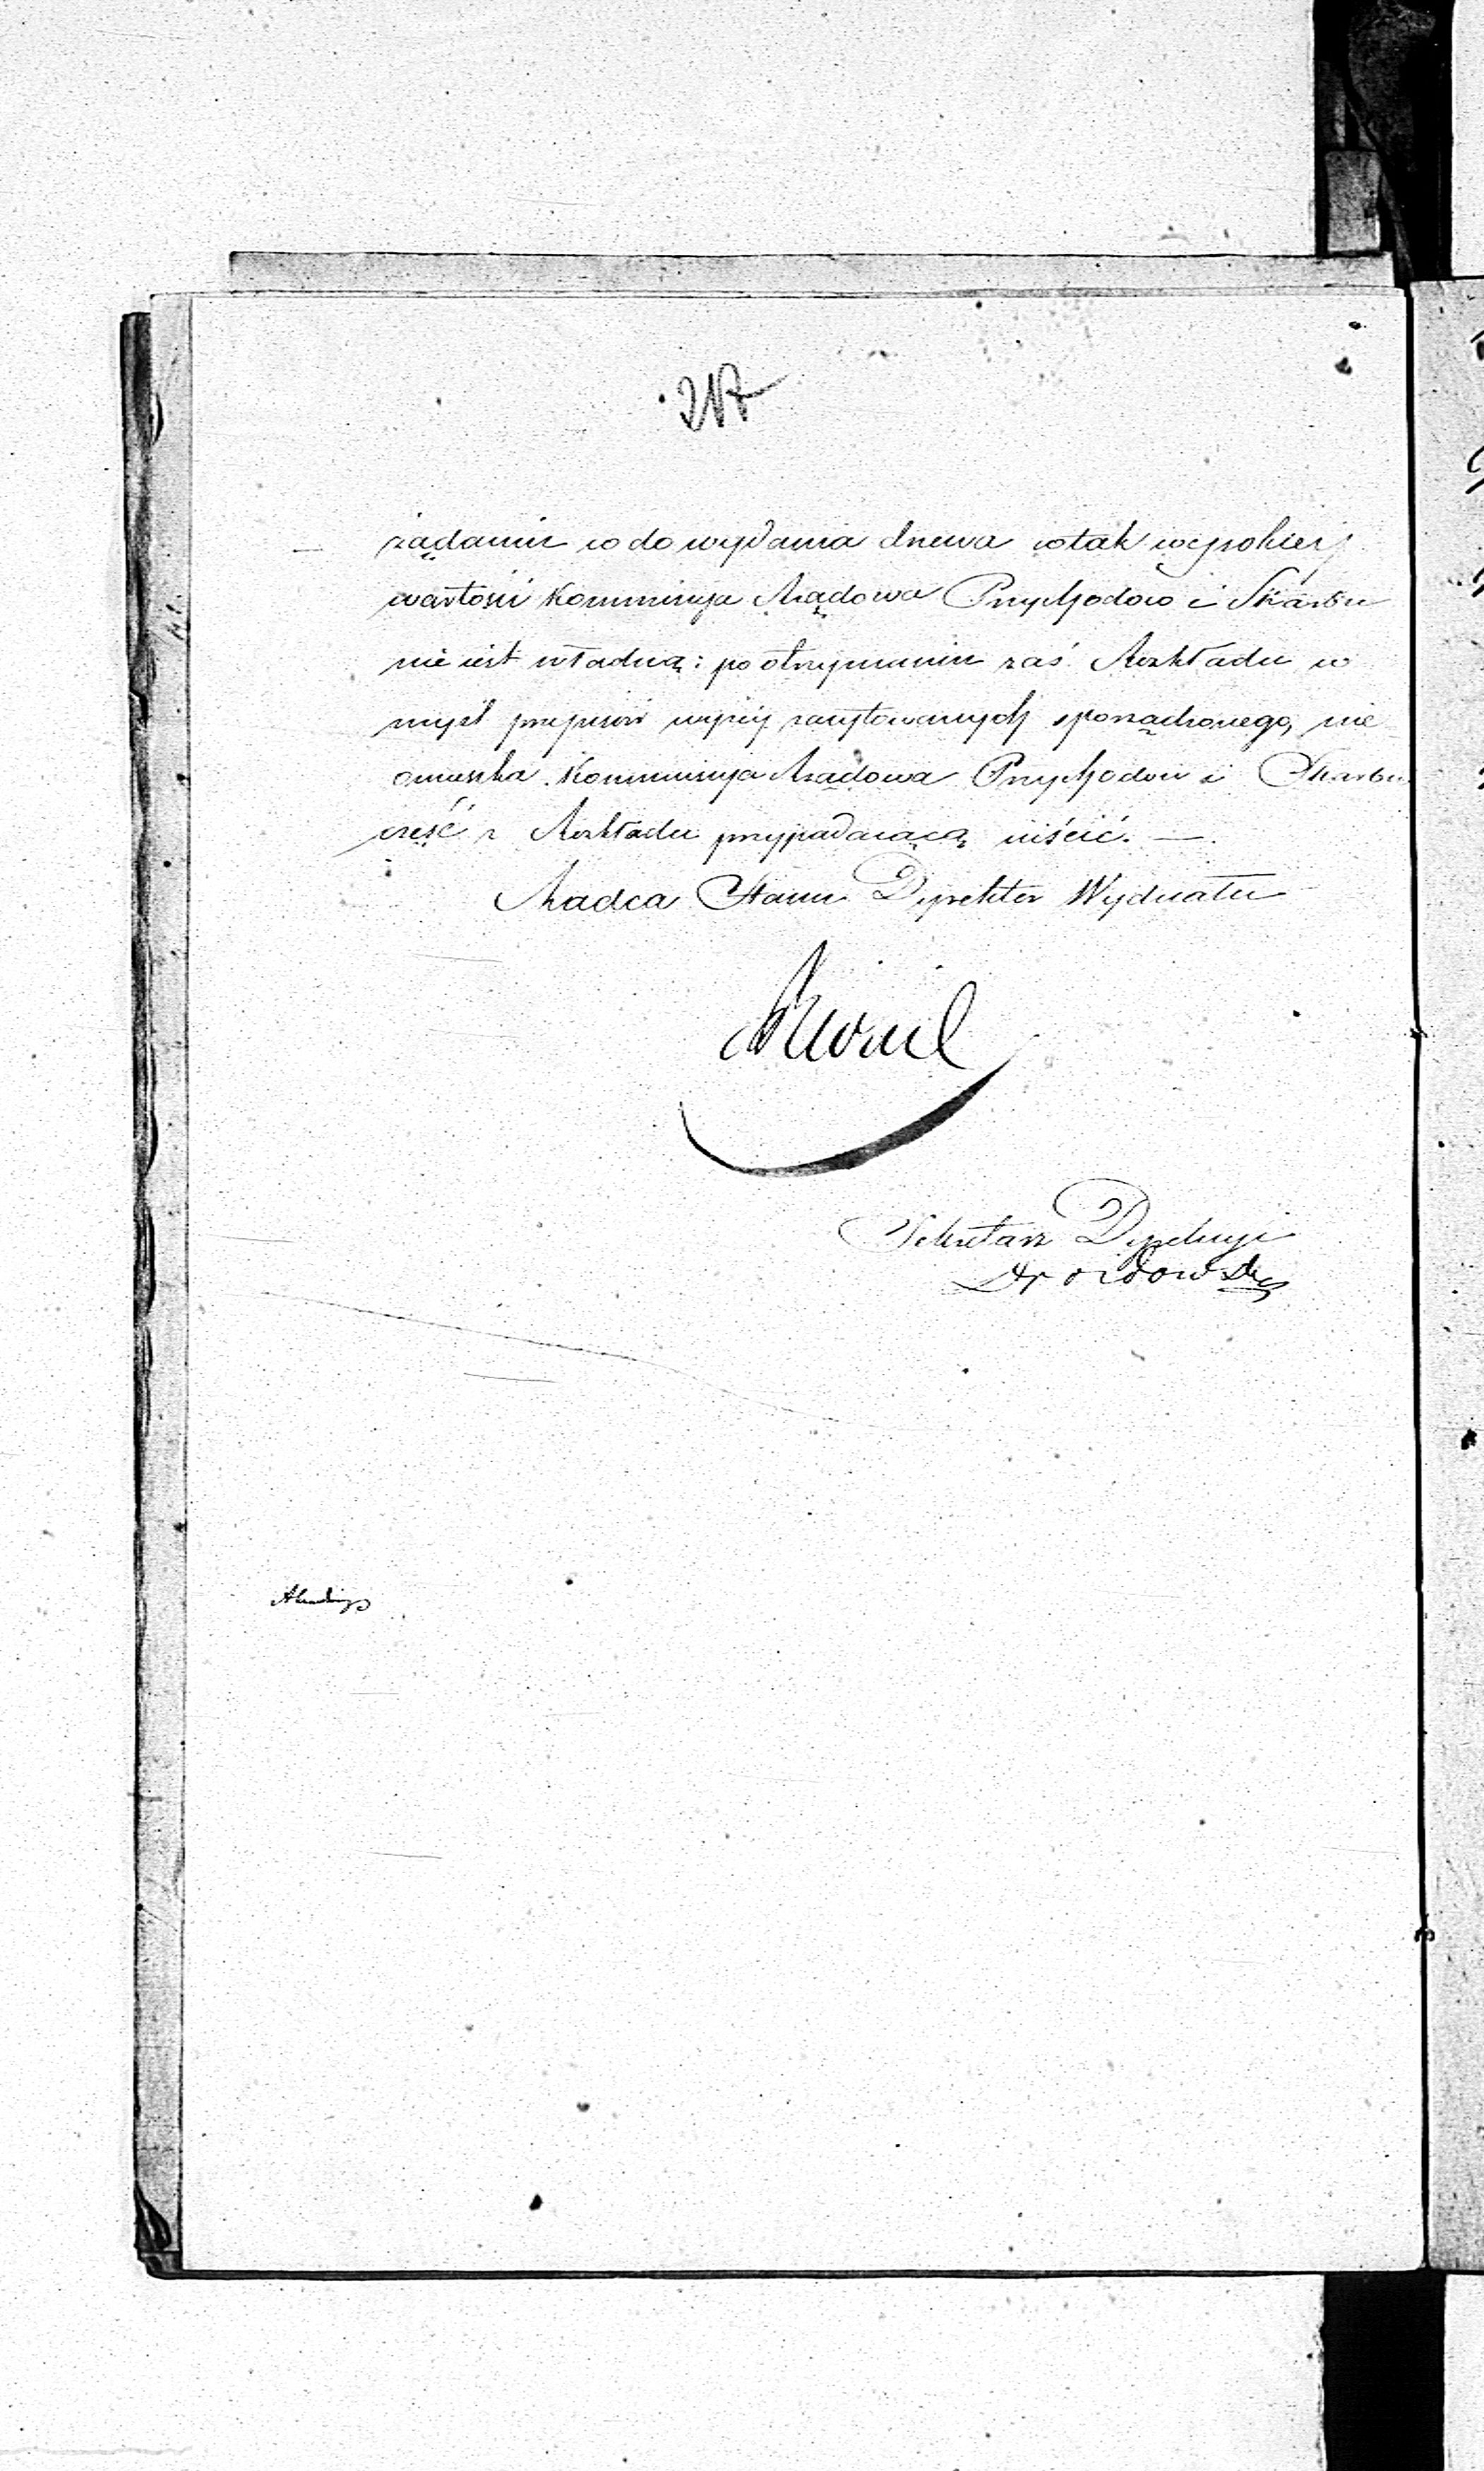 217
żądaniu co do wydania drzewa w tak wysokiéj
wartości Kommissyja Rządowa Przychodow i Skarbu
nie iest władną: po otrzymaniu zaś Rozkładu w
myśl przepisów wyżey zacytowanych sporządzonego, nie
omieszka Kommissyja Rządowa Przychodow i Skarbu
część z Rozkładu przypadaiącą uiścić. —
Radca Stanu Dyrektor Wydziału
Sekretarz Dyrekcyi
Drozdowski